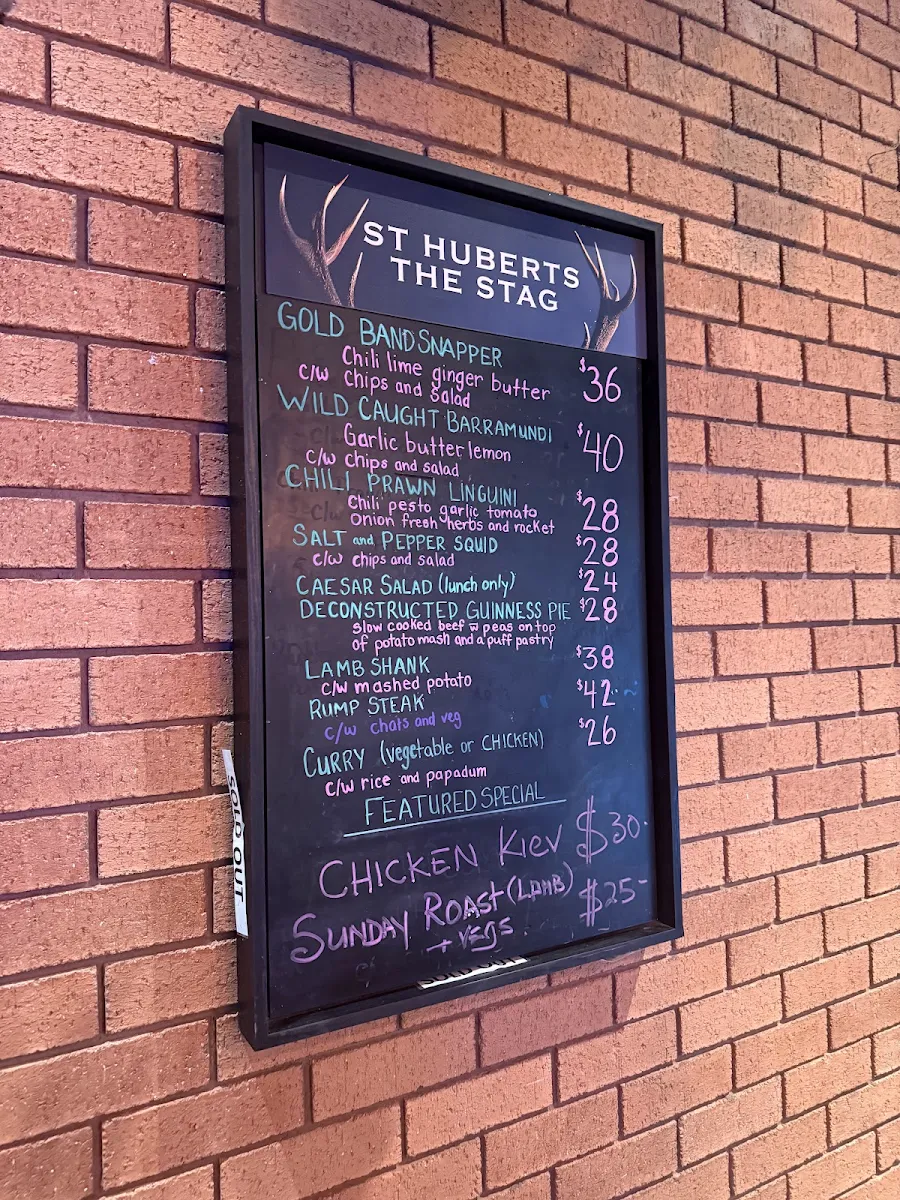 ST HUBERTS
THE STAG
GOLD BAND SNAPPER
Chili lime ginger butter
c/w chips and salad
$36
WILD CAUGHT BARRAMUNDI
Garlic butter lemon
c/w chips and salad
$40
CHILI PRAWN LINGUINI
Chili pesto garlic tomato
onion fresh herbs and rocket
$28
SALT and PEPPER SQUID
c/w chips and salad
$28
CAESAR SALAD (lunch only) $24
DECONSTRUCTED GUINNESS PIE $28
slow cooked beef w peas on top
of potato mash and a puff pastry
LAMB SHANK $38
c/w mashed potato
RUMP STEAK $42
c/w chats and veg
CURRY (vegetable or CHICKEN) $26
c/w rice and papadum
FEATURED SPECIAL
CHICKEN KIEV $30.
SUNDAY ROAST (LAMB) $25-
+ VEGS
SOLD OUT